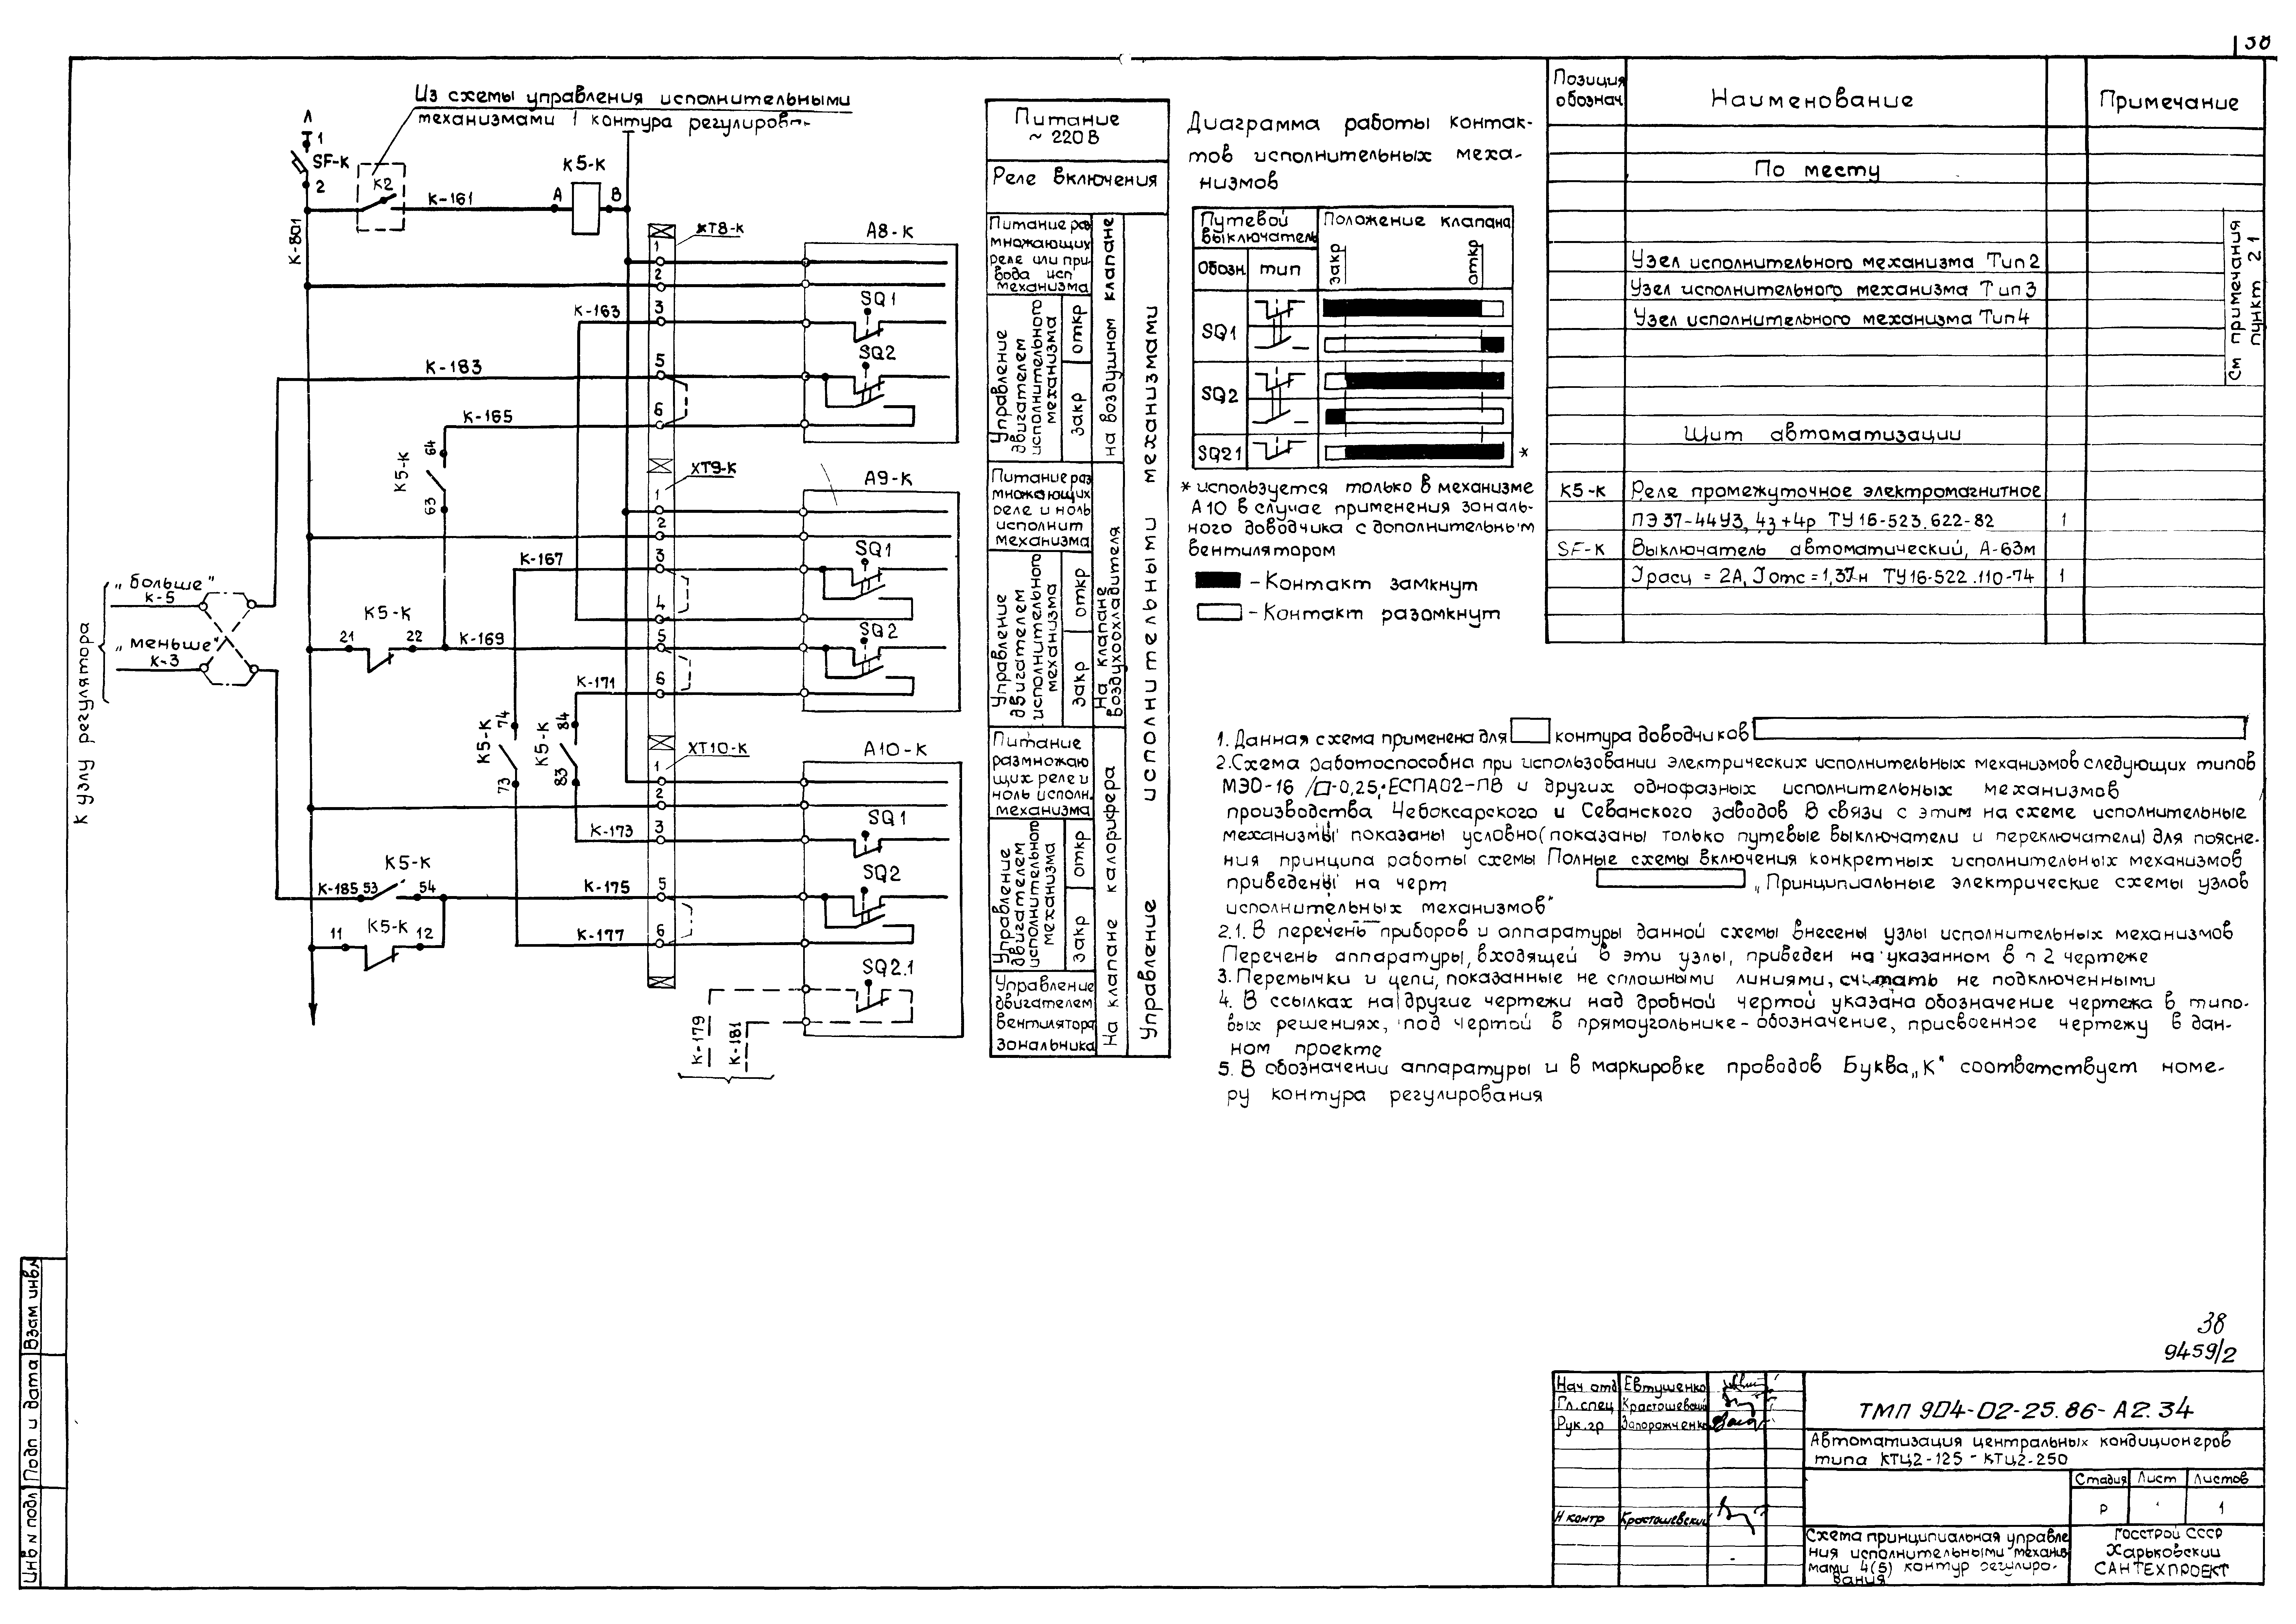 38
Из схемы управления исполнительными
механизмами 1 контура регулиров
Л
1
SF-К
2
К2
К-161
К5-К
А
В
К-801
ХТ8-К
А8-К
1
2
3
5
6
К-163
К-183
К-165
SQ1
SQ2
64
К5-К
63
ХТ9-К
А9-К
1
2
3
4
5
6
К-167
SQ1
SQ2
К узлу регулятора
„больше"
К-5
„меньше"
К-3
К5-К
21
22
К-169
К-171
74
К5-К
73
84
К5-К
83
ХТ10-К
А10-К
1
2
3
5
6
К-173
К-175
К-177
SQ1
SQ2
SQ2.1
К5-К
К-185
53
54
К5-К
11
12
К-179
К-181
Питание
~ 220 В
Реле включения
Питание раз
множающих
реле или при-
вода исп
механизма
Управление
двигателем
исполнительного
механизма
откр
закр
на воздушном клапане
Питание раз
множающих
реле и ноль
исполнит
механизма
Управление
двигателем
исполнительного
механизма
откр
закр
На клапане
воздухохладителя
Питание
размножаю
щих реле и
ноль исполн.
механизма
Управление
двигателем
исполнительного
механизма
откр
закр
Управление
двигателем
вентилятора
зональника
На клапане калорифера
Управление исполнительными механизмами
Диаграмма работы контак-
тов исполнительных меха-
низмов
Путевой
выключатель
Положение клапана
Обозн.
тип
закр
откр
SQ1
SQ2
SQ21
*
* используется только в механизме
А10 в случае применения зональ-
ного доводчика с дополнительным
вентилятором
- Контакт замкнут
- Контакт разомкнут
Позиция
обознач.
Наименование
Примечание
По месту
Узел исполнительного механизма Тип 2
Узел исполнительного механизма Тип 3
Узел исполнительного механизма Тип 4
См примечания
пункт 2 1
Щит автоматизации
К5-К Реле промежуточное электромагнитное
ПЭ 37-44У3, 4з+4р ТУ 16-523.622-82 1
SF-К Выключатель автоматический, А-63м
Iрасц = 2А, Iотс = 1,3Iн ТУ16-522.110-74 1
1. Данная схема применена для контура доводчиков
2. Схема работоспособна при использовании электрических исполнительных механизмов следующих типов
МЭО-16 /□-0,25; ЕСПА02-ПВ и других однофазных исполнительных механизмов
производства Чебоксарского и Севанского заводов В связи с этим на схеме исполнительные
механизмы показаны условно (показаны только путевые выключатели и переключатели) для поясне-
ния принципа работы схемы Полные схемы включения конкретных исполнительных механизмов
приведены на черт „Принципиальные электрические схемы узлов
исполнительных механизмов"
2.1. В перечень приборов и аппаратуры данной схемы внесены узлы исполнительных механизмов
Перечень аппаратуры, входящей в эти узлы, приведен на указанном в п 2 чертеже
3. Перемычки и цепи, показанные не сплошными линиями, считать не подключенными
4. В ссылках на другие чертежи над дробной чертой указана обозначение чертежа в типо-
вых решениях, под чертой в прямоугольнике - обозначение, присвоенное чертежу в дан-
ном проекте
5. В обозначении аппаратуры и в маркировке проводов Буква „К" соответствует номе-
ру контура регулирования
38
9459/2
Нач отд Евтушенко
Гл.спец Красташевский
Рук.гр Запорожченко
Н контр Красташевский
ТМП 904-02-25.86-А2.34
Автоматизация центральных кондиционеров
типа КТЦ2-125 - КТЦ2-250
Стадия Лист Листов
Р 1
Схема принципиальная управле
ния исполнительными механиз
мами 4(5) контур регулиро-
вания
Госстрой СССР
Харьковский
САНТЕХПРОЕКТ
Инв N подл
Подп и дата
Взам инв.N